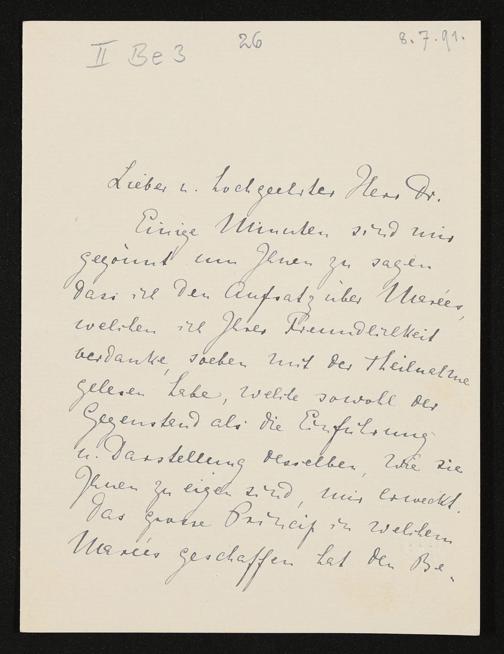 II Be 3
26
8.7.91.
Lieber u. hochgeehrter Herr Dr.
Einige Minuten sind mir
gegönnt um Ihnen zu sagen
dass ich den Aufsatz über Marées,
welchen ich Ihrer Freundlichkeit
verdanke, soeben mit der Theilnahme
gelesen habe, welche sowohl der
Gegenstand als die Einführung
u. Darstellung desselben, wie sie
Ihnen zu eigen sind, mir erweckt.
Das grosse Princip in welchem
Marées geschaffen hat den Be-